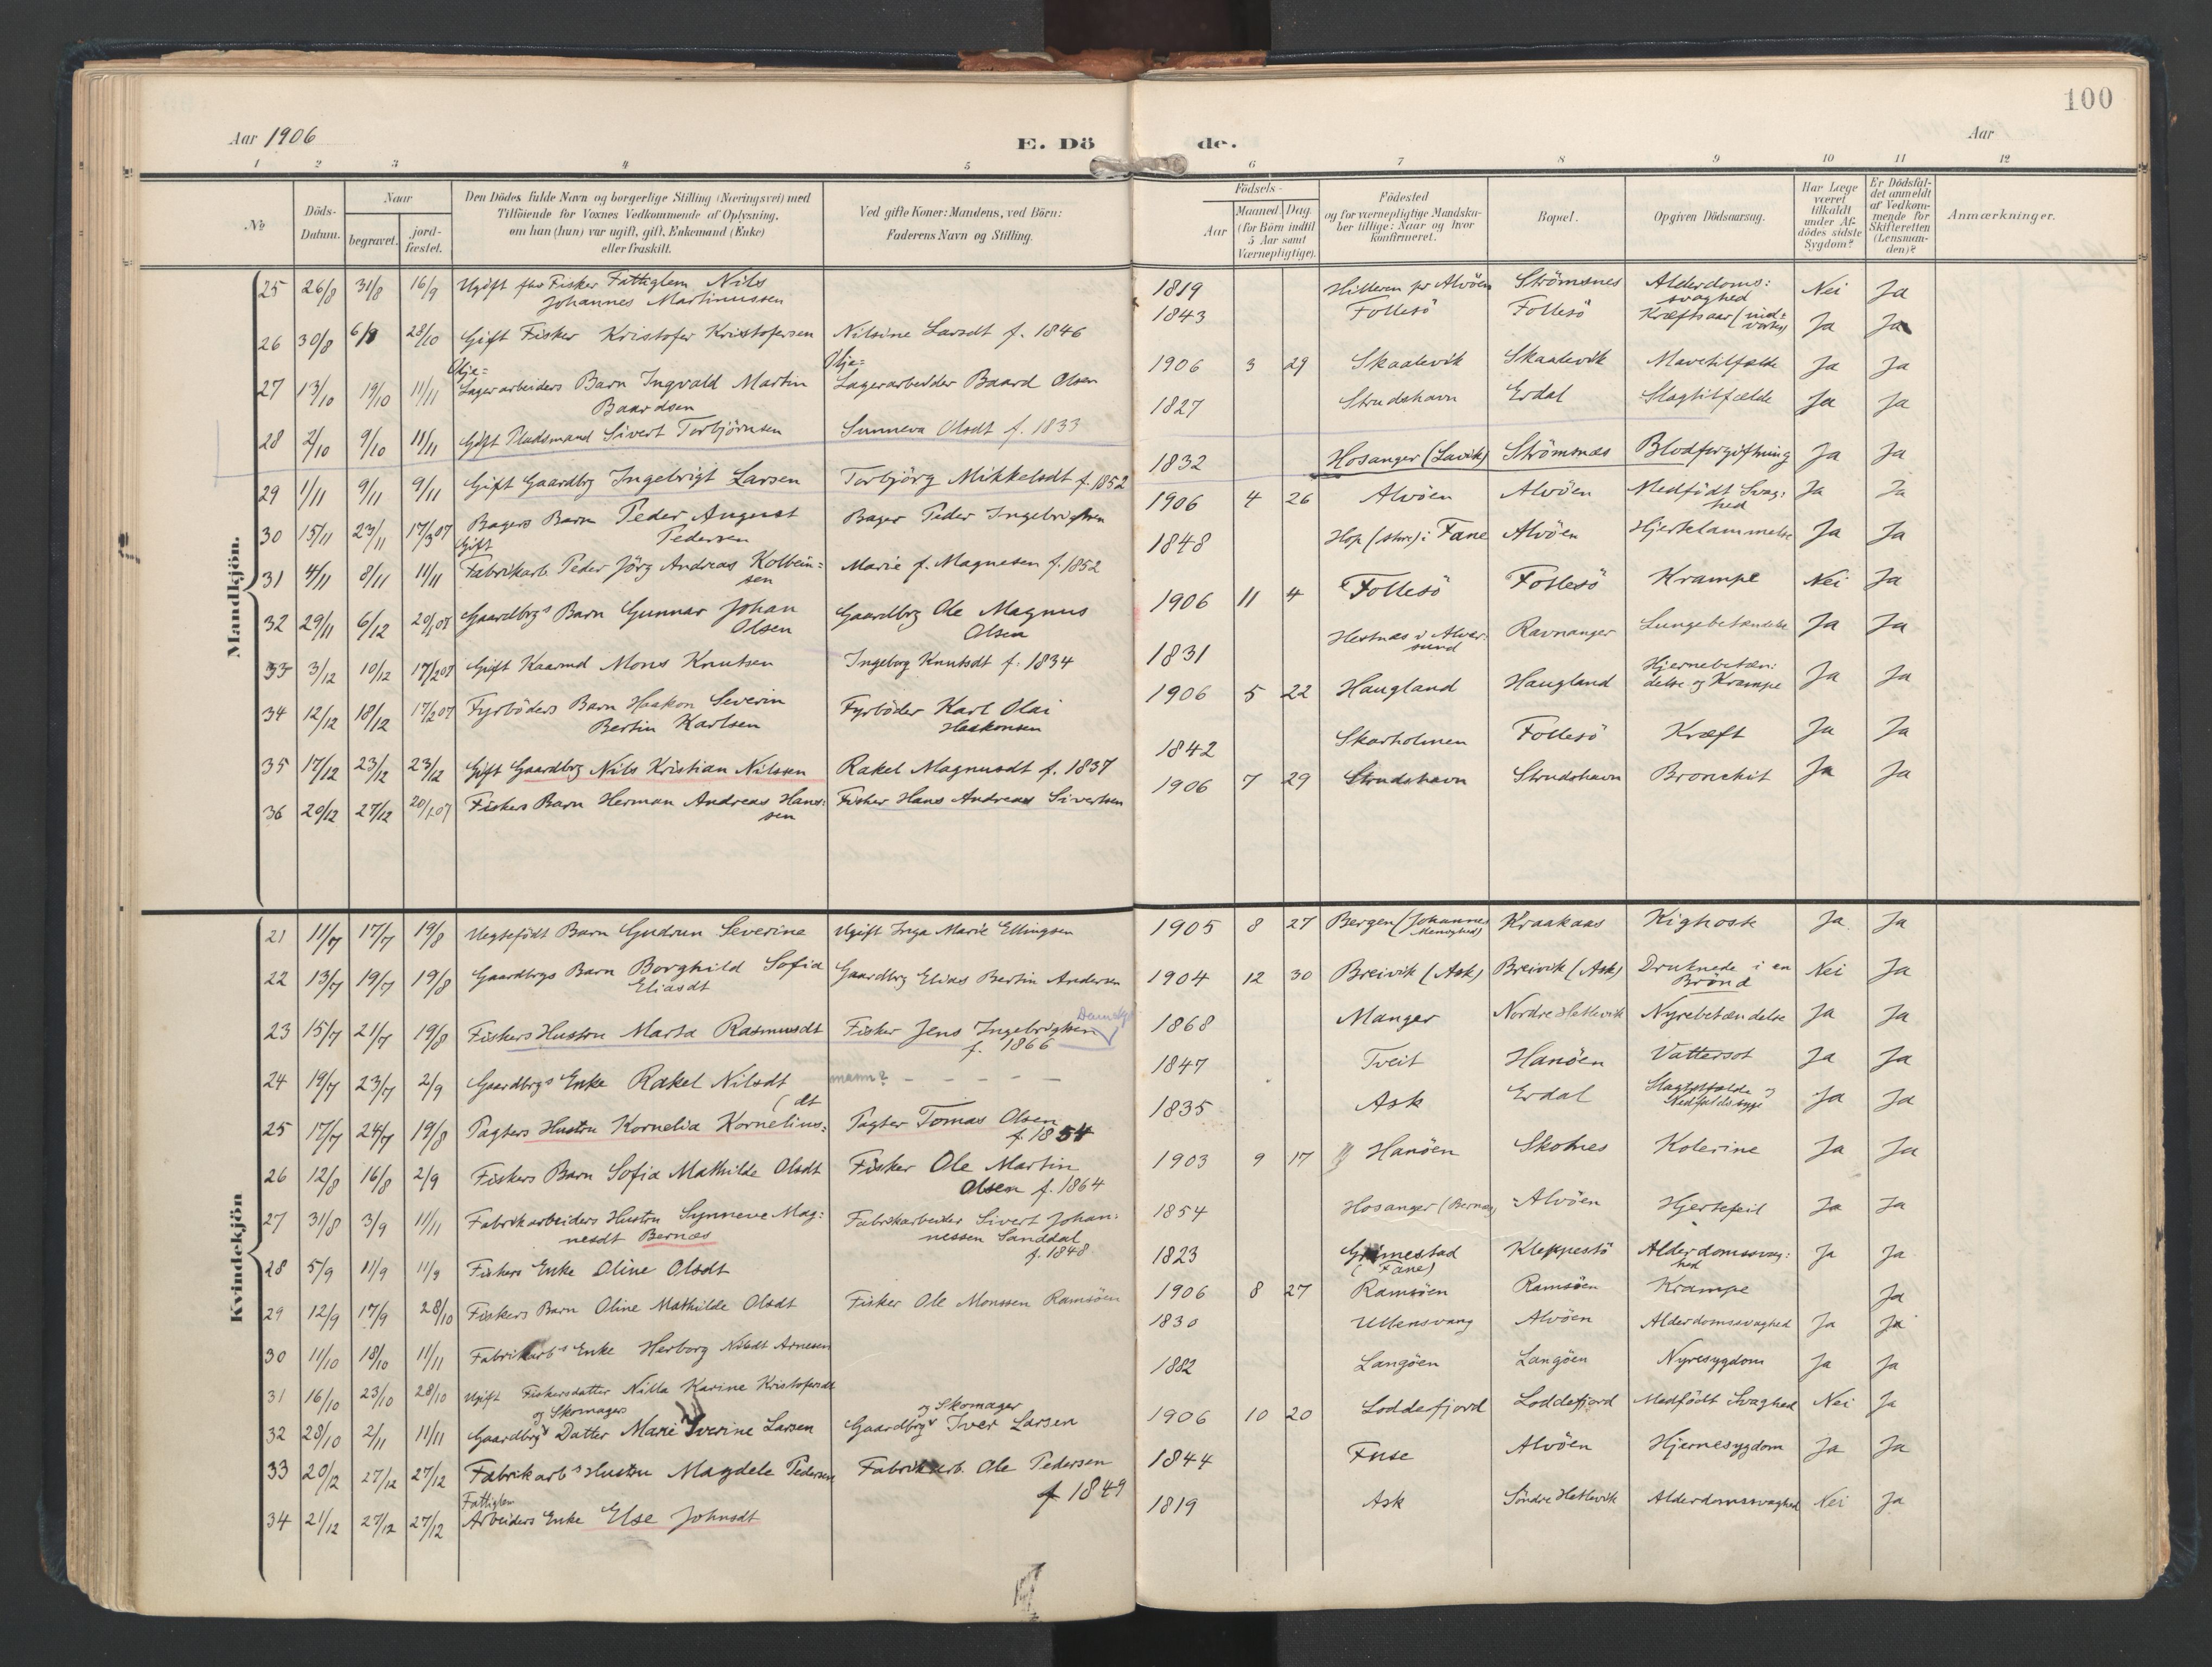 100
Aar 1906
E. Dö de.
Aar
1 2 3 4 5 6 7 8 9 10 11 12
No
Döds-Datum.
Naar
begravet. jord-fæstet.
Den Dödes fulde Navn og borgerlige Stilling (Næringsvei) med
Tilföiende for Voxnes Vedkommende af Oplysning,
om han (hun) var ugift, gift, Enkemand (Enke)
eller fraskilt.
Ved gifte Koner: Mandens, ved Börn:
Faderens Navn og Stilling.
Födsels-
Aar
Maaned Dag
(for Börn indtil
5 Aar samt
Værnepligtige).
Födested
og for værnepligtige Mandska-
ber tillige: Naar og hvor
konfirmeret.
Bopæl.
Opgiven Dödsaarsag.
Har Læge
været
tilkaldt
under Af-
dödes sidste
Sygdom?
Er Dödsfal-
det anmeldt
af Vedkom-
mende for
Skifteretten
(Lensman-
den)?
Anmærkninger.
Mandkjön.
25 26/8 31/8 16/9 Ugift Fisker Fattiglem Nils
Johannes Martinussen
1819 Hilleren pr Alvöen Strömsnes Alderdoms:
svaghed Nei Ja
26 30/8 28/10 Gift Fisker Kristofer Kristofersen Nilsine Larsdt f. 1846
1843 Follesö Follesö Kræftsaar Ja Ja
Olje= Olje=
27 13/10 19/10 11/11 Lagerarbeiders Barn Ingvald Martin Lagerarbeider Baard Olsen
Baardsen
1906 3 29 Skaalevik Skaalevik Mavetilfælde Ja Ja
28 2/10 9/10 11/11 Gift Pladsmand Sivert Torbjörnsen Sunneva Olsdt f. 1833
1827 Strudshavn Erdal Slagtilfælde Ja Ja
29 1/11 9/11 9/11 Gift Gaardbrg Ingebrigt Larsen Torbjörg Mikkelsdt f. 1852
1832 Hosanger (Lavik) Strömsnæs Blodforgiftning Ja Ja
30 15/11 23/11 17/3 07 Bagers Barn Peder August Bager Peder Ingebrigtsen
Pedersen
1906 4 26 Alvöen Alvöen Medfödt Svag:
hed Ja Ja
Gift
31 4/11 8/11 11/11 Fabrikarb. Peder Jörg Andreas Kolbein= Marie f. Magnesen f. 1852
sen
1848 Hop i Fane Alvöen Hjertelammelse Ja Ja
32 29/11 6/12 20/1 07 Gaardbrgs Barn Gunnar Johan Gaardbrg Ole Magnus
Olsen Olsen
1906 11 4 Follesö Follesö Krampe Nei Ja
33 3/12 10/12 17/2 07 Gift Kaarmd Mons Knutsen Ingeborg Knutsdt f. 1834
1831 Hestnæs i Alver:
sund Ravnanger Lungebetændelse Ja Ja
34 12/12 18/12 17/2 07 Fyrböders Barn Haakon Severin Fyrböder Karl Olai
Bertin Karlsen Haakonsen
1906 5 22 Haugland Haugland Hjernebetæn:
delse og Krampe Ja Ja
35 17/12 23/12 23/12 Gift Gaardbrg Nils Kristian Nilssen Rakel Magnusdt f. 1837
1842 Skarholmen Follesö Kræft Ja Ja
36 20/12 27/12 20/1 07 Fiskers Barn Herman Andreas Hans: Fisker Hans Andreas Sivertsen
sen
1906 7 29 Strudshavn Strudshavn Bronchit Ja Ja
Kvindekjön
21 11/7 17/7 19/8 Uegtefödt Barn Gudrun Severine Ugift Inga Marie Ellingsen
1905 8 27 Bergen (Johannes
Menighed) Kraakaas Kighoste Ja Ja
22 13/7 19/7 19/8 Gaardbrgs Barn Borghild Sofia Gaardbrg Elias Bertin Andersen
Eliasdt
1904 12 30 Breivik (Ask) Breivik (Ask) Druknede i en
Brönd Nei Ja
23 15/7 21/7 19/8 Fiskers Hustru Marta Rasmusdt Fisker Jens Ingebrigtsen
f. 1866
1868 Manger Nordre Hetlevik Nyrebetændelse Ja Ja
24 19/7 23/7 2/9 Gaardbrgs Enke Rakel Nilsdt mann? – – – – –
1847 Tveit Hanöen Vattersot Ja Ja
25 17/7 24/7 19/8 Pagters Hustru Kornelia Kornelius: Pagter Tomas Olsen
dt f. 1854
1835 Ask Erdal Slagtilfælde og
Nedfaldssyge Ja Ja
26 12/8 16/8 2/9 Fiskers Barn Sofia Mathilde Olsdt Fisker Ole Martin
Olsen f. 1864
1903 9 17 Hanöen Skolnes Kolerine Ja Ja
27 31/8 3/9 11/11 Fabrikarbeiders Hustru Synneve Mag: Fabrikarbeider Sivert Johan:
nesdt Bernæs nessen Sanddal
f. 1848
1854 Hosanger (Bernæs) Alvöen Hjertefeil Ja Ja
28 5/9 11/9 11/9 Fiskers Enke Oline Olsdt
1823 Grimestad
(Fane) Kleppestö Alderdomssvag:
hed Ja Ja
29 12/9 17/9 28/10 Fiskers Barn Oline Mathilde Olsdt Fisker Ole Monssen Ramsöen
1906 8 27 Ramsöen Ramsöen Krampe Ja
30 11/10 18/10 11/11 Fabrikarbs Enke Herborg Nilsdt Arnesen
1830 Ullensvang Alvöen Alderdomssvaghed Ja Ja
31 16/10 23/10 28/10 Ugift Fiskersdatter Nilla Karine Kristofersdt
1882 Langöen Langöen Nyresygdom Ja Ja
og Skomagers og Skomager
32 28/10 2/11 11/11 Gaardbrgs Datter Marie Iverine Larsen Gaardbrgr Iver Larsen
1906 10 20 Loddefjord Loddefjord Medfödt Svaghed Nei Ja
33 20/12 27/12 27/12 Fabrikarbs Hustru Magdele Pedersen Fabrikarb. Ole Pedersen
f 1849
1844 Fuse Alvöen Hjernesygdom Ja Ja
Fattiglem
34 21/12 27/12 27/12 Arbeiders Enke Else Johnsdt
1819 Ask Söndre Hetlevik Alderdomssvaghed Nei Ja